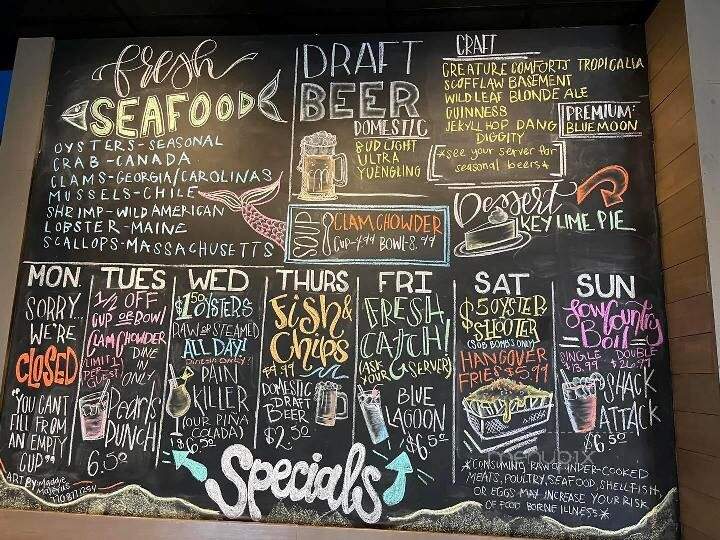 fresh
SEAFOOD
OYSTERS-SEASONAL
CRAB-CANADA
CLAMS-GEORGIA/CAROLINAS
MUSSELS-CHILE
SHRIMP-WILD AMERICAN
LOBSTER-MAINE
SCALLOPS-MASSACHUSETTS
DRAFT
BEER
DOMESTIC
BUD LIGHT
ULTRA
YUENGLING
CRAFT
CREATURE COMFORTS TROPICALIA
SCOFFLAW BASEMENT
WILD LEAF BLONDE ALE
GUINNESS
JEKYLL HOP DANG
DIGGITY
PREMIUM:
BLUE MOON
*see your server for
seasonal beers*
SOUP
CLAM CHOWDER
CUP-4.99 BOWL-8.99
Dessert
KEY LIME PIE
MON.
SORRY...
WE'RE
CLOSED
"YOU CAN'T
FILL FROM
AN EMPTY
CUP"
TUES
1/2 OFF
CUP OR BOWL
CLAM CHOWDER
LIMIT 1
PER GUEST
DINE
IN
ONLY
Pearl's
PUNCH
6.50
WED
$1.50 OYSTERS
RAW OR STEAMED
ALL DAY!
PAIN
KILLER
(OUR PIÑA
COLADA)
$6.50
THURS
Fish &
Chips
DOMESTIC
DRAFT
BEER
$2.50
FRI
FRESH
CATCH!
(ASK
YOUR SERVER)
BLUE
LAGOON
$6.50
SAT
$5 OYSTER
SHOOTER
HANGOVER
FRIES $5.99
SUN
Low Country
Boil
SINGLE DOUBLE
SHACK
ATTACK
$6.50
Specials
*CONSUMING RAW OR UNDER-COOKED
MEATS, POULTRY, SEAFOOD, SHELLFISH,
OR EGGS MAY INCREASE YOUR RISK
OF FOOD BORNE ILLNESS*
ART BY: Maddie
menupix